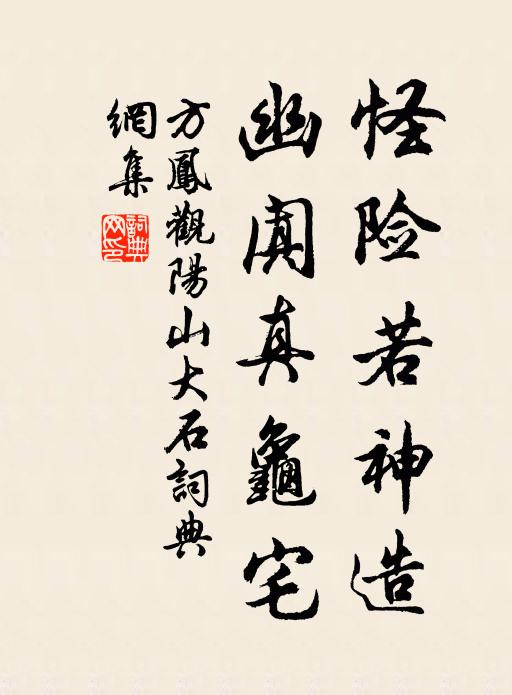 怪险若神造
幽闃真龜宅
方鳳觀陽山大石詞典
網集
詞典
网印